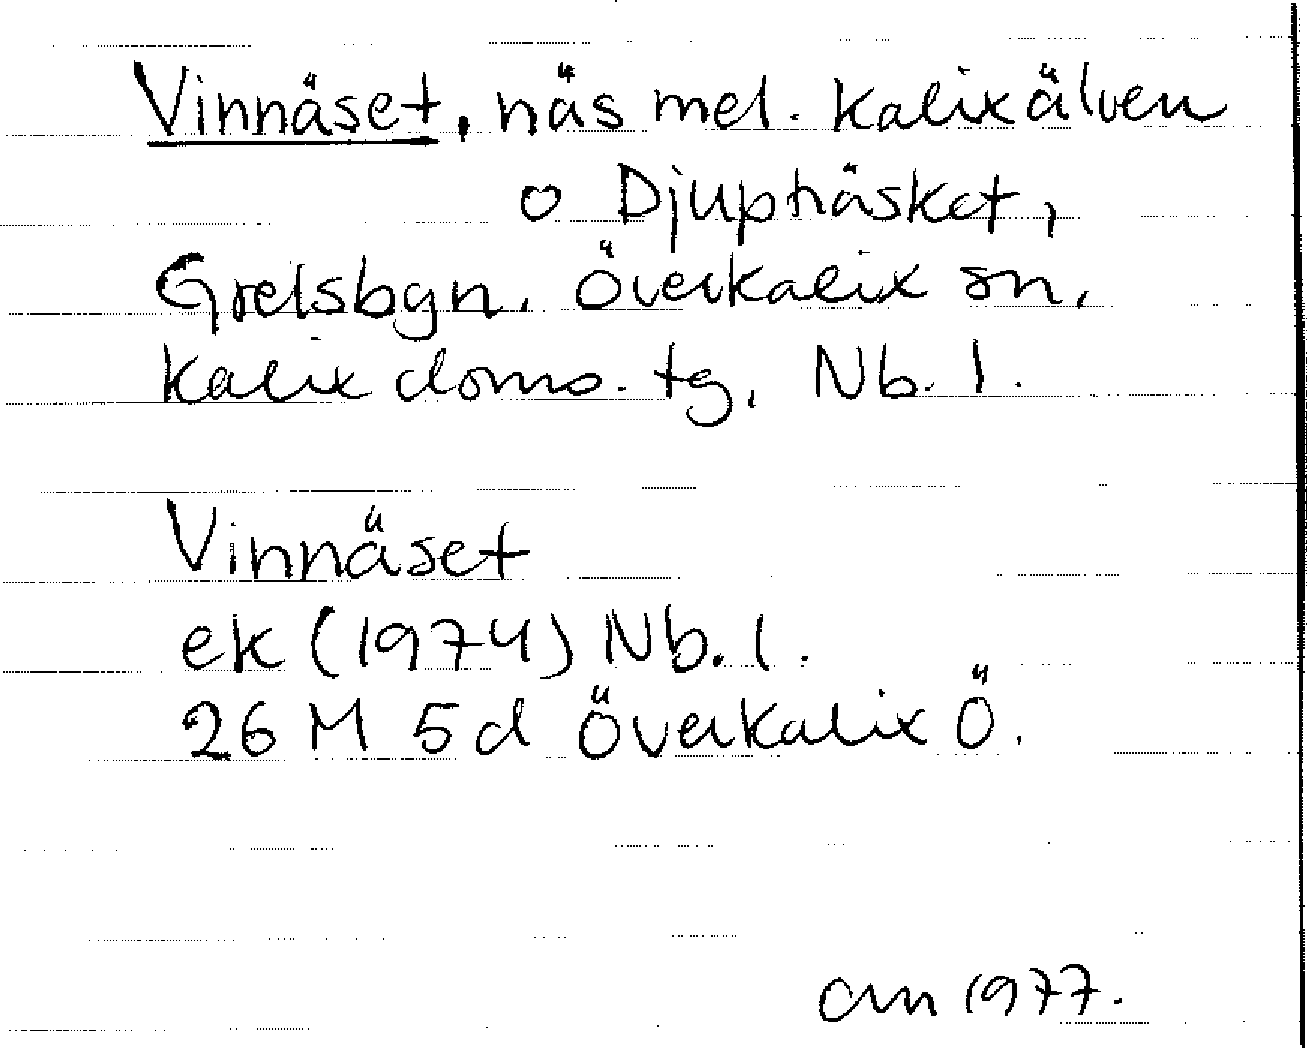 Vinnäset, näs mel. Kalixälven
o Djupträsket,
Grelsbyn, Överkalix sn,
Kalix doms. tg, Nb. l.
Vinnäset
ek (1974) Nb. l.
26 M 5d Överkalix Ö.
am 1977.